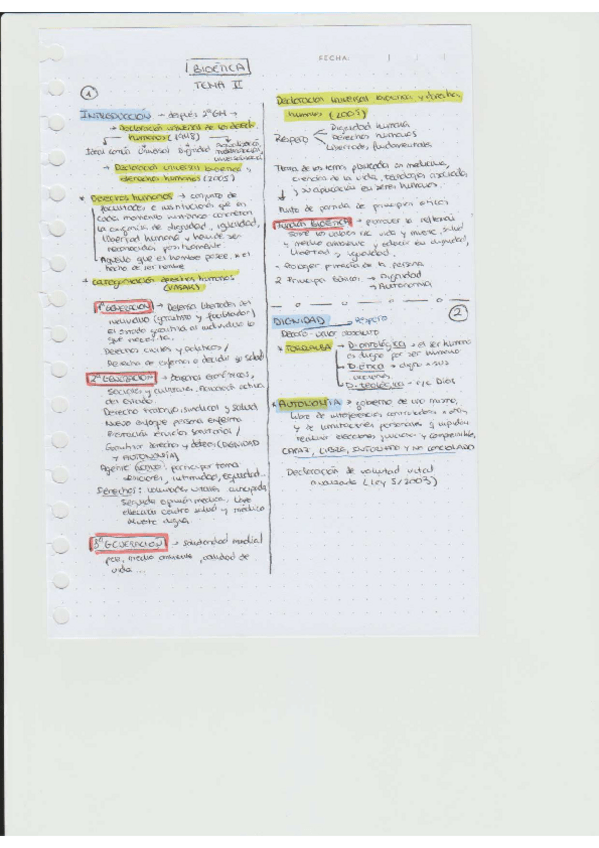 FECHA:
BIOÉTICA
TEMA II
1
INTRODUCCIÓN → después 2ª GM →
→ Declaración universal de los derech.
humanos (1948)
Ideal común Universal Dignidad
→ Declaración Universal bioética y
derechos humanos (2005)
* Derechos humanos → conjunto de
facultades e instituciones que en
cada momento histórico concretan
la exigencia de dignidad, igualdad,
libertad humana y han de ser
reconocidas positivamente.
Aquello que el hombre posee x el
hecho de ser hombre
+ categorización derechos humanos
(VASAK)
1ª GENERACIÓN → Defensa libertades del
individuo (garantiza y facilitador)
El estado garantiza al individuo lo
que necesita.
Derechos civiles y políticos /
Derecho de enfermo a decidir su salud
2ª GENERACIÓN → Derechos económicos,
sociales y culturales.
del Estado.
Derecho trabajo, sindical y salud
Nuevo enfoque persona enferma
servicios sanitarios /
Garantizar derechos y deberes (DIGNIDAD
Y AUTONOMÍA)
Agente activo: participar toma
decisiones, intimidad, seguridad...
Derechos: voluntades vitales anticipada
Segunda opinión médica. Libre
elección centro salud y médico
Muerte digna.
3ª GENERACIÓN → solidaridad mundial
paz, medio ambiente, calidad de
vida...
Declaración universal bioética y derechos
humanos (2005)
Respeto
Dignidad humana
Derechos humanos
Libertades fundamentales
Trata de los temas planteados en medicina,
ciencias de la vida, tecnologías asociadas,
y su aplicación en seres humanos.
Punto de partida de principios éticos
Función Bioética → promover la reflexión
sobre los valores de vida y muerte, salud
y medio ambiente y educar en dignidad,
libertad e igualdad.
- Proteger primacía de la persona
2 Principios básicos → Dignidad
→ Autonomía
2
DIGNIDAD → respeto
valor absoluto
* TORRALBA → D. ontológica → el ser humano
es digno por ser humano
D. ética → digno x sus
acciones
D. teológica → eje Dios
* AUTONOMÍA → gobierno de uno mismo,
libre de interferencias controladoras x otros
y de limitaciones personales q impidan
realizar elecciones juiciosas y comprensibles,
CAPAZ, LIBRE, INFORMADO Y NO CONTROLADO
Declaración de voluntad vital
anticipada (Ley 5/2003)